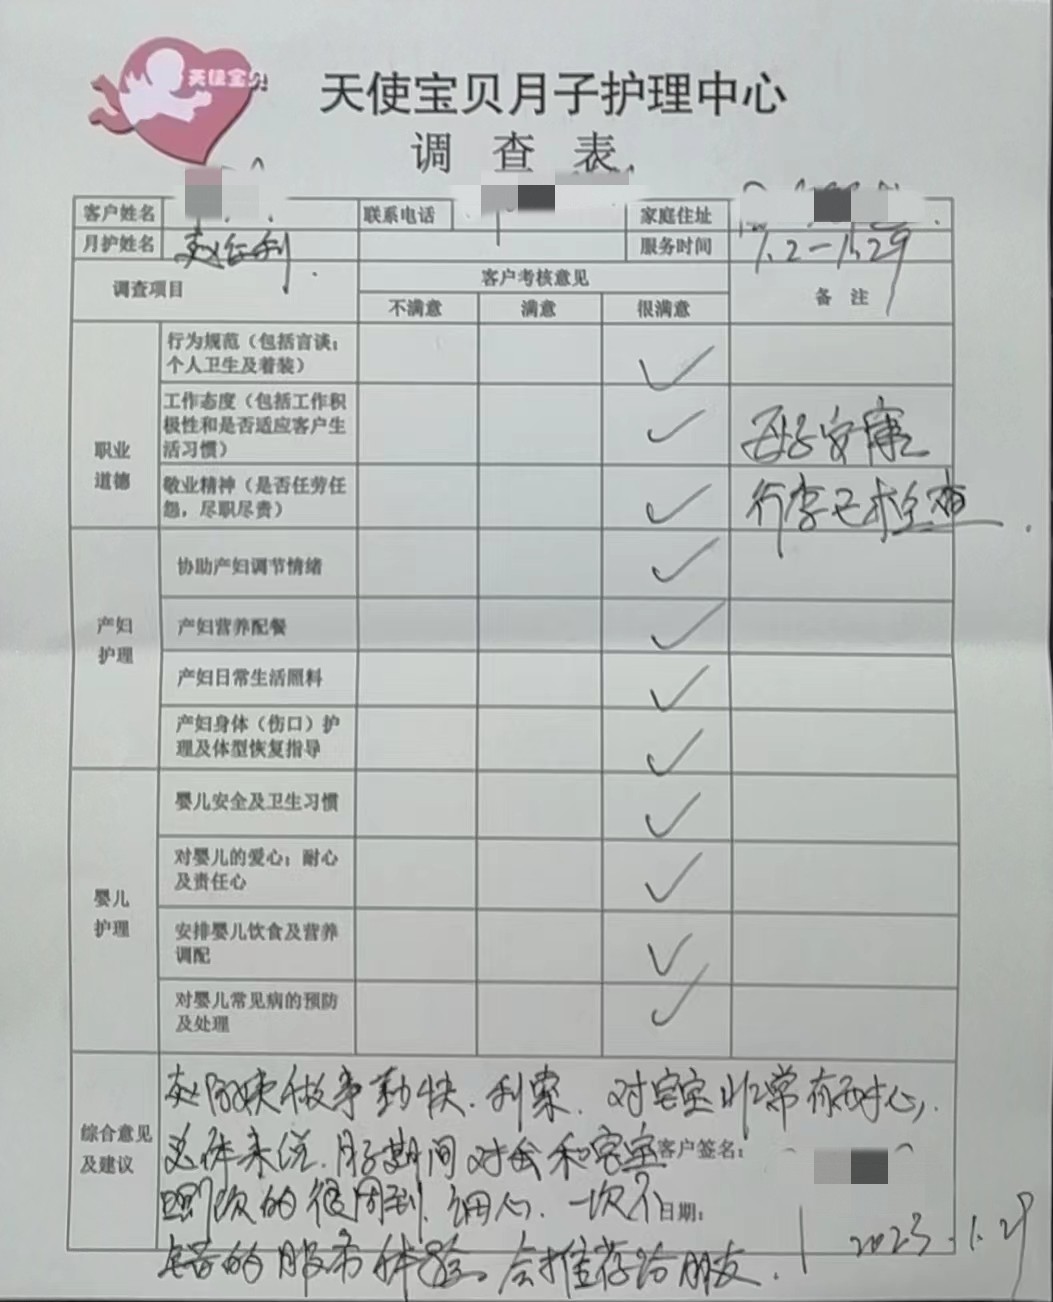 天使宝贝
天使宝贝月子护理中心
调 查 表
客户姓名 联系电话 家庭住址
月护姓名 赵 利 服务时间 1.2—1.29
调查项目 客户考核意见 备 注
不满意 满意 很满意
职业
道德
行为规范（包括言谈；
个人卫生及着装）
工作态度（包括工作积
极性和是否适应客户生
活习惯）
母子安康
敬业精神（是否任劳任
怨，尽职尽责）
行李已检查
产妇
护理
协助产妇调节情绪
产妇营养配餐
产妇日常生活照料
产妇身体（伤口）护
理及体型恢复指导
婴儿
护理
婴儿安全及卫生习惯
对婴儿的爱心；耐心
及责任心
安排婴儿饮食及营养
调配
对婴儿常见病的预防
及处理
综合意见
及建议
赵阿姨做事勤快、利索、对宝宝非常有耐心，
总体来说，月子期间对我和宝宝
客户签名：
照顾的很周到、细心、一次不
日期：
错的服务体验。会推荐给朋友。
2023.1.29